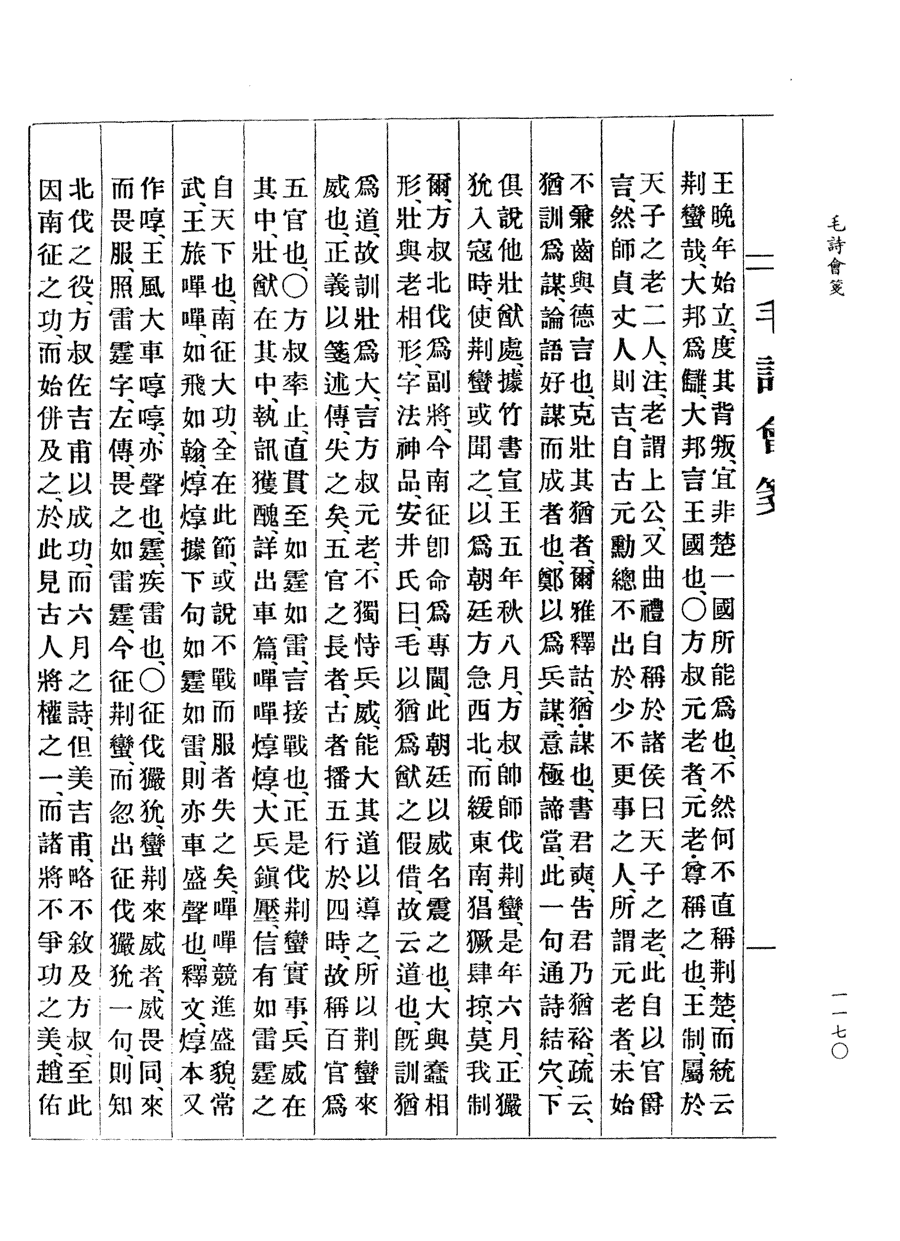 毛詩會箋
一一七〇
毛詩會箋
王晚年始立、度其背叛、宜非楚一國所能爲也、不然何不直稱荆楚、而統云
荆蠻哉、大邦爲讎、大邦言王國也、〇方叔元老者、元老・尊稱之也、王制、屬於
天子之老二人、注、老謂上公、又曲禮自稱於諸侯曰天子之老、此自以官爵
言、然師貞丈人則吉、自古元勳總不出於少不更事之人、所謂元老者、未始
不兼齒與德言也、克壯其猶者、爾雅釋詁、猶・謀也、書君奭、告君乃猶裕、疏云、
猶訓爲謀、論語好謀而成者也、鄭以爲兵謀、意極諦當、此一句通詩結穴、下
俱說他壯猷處、據竹書宣王五年秋八月、方叔帥師伐荆蠻、是年六月、正玁
狁入寇時、使荆蠻或聞之、以爲朝廷方急西北、而緩東南、猖獗肆掠、莫我制
爾、方叔北伐爲副將、今南征卽命爲專閫、此朝廷以威名震之也、大與蠢相
形、壯與老相形、字法神品、安井氏曰、毛以猶爲猷之假借故云道也、旣訓猶
爲道、故訓壯爲大、言方叔元老、不獨恃兵威、能大其道以導之、所以荆蠻來
威也、正義以箋述傳、失之矣、五官之長者、古者播五行於四時、故稱百官爲
五官也、〇方叔率止、直貫至如霆如雷、言接戰也、正是伐荆蠻實事、兵威在
其中、壯猷在其中、執訊獲醜、詳出車篇、嘽嘽焞焞、大兵鎭壓、信有如雷霆之
自天下也、南征大功、全在此節、或說不戰而服者失之矣、嘽嘽競進盛貌、常
武、王旅嘽嘽、如飛如翰、焞焞據下句如霆如雷、則亦車盛聲也、釋文、焞本又
作啍、王風大車啍啍、亦聲也、霆、疾雷也、〇征伐玁狁、蠻荆、來威者、威畏同、來
而畏服、照雷霆字、左傳、畏之如雷霆、今征荆蠻、而忽出征伐玁狁一句、則知
北伐之役、方叔佐吉甫以成功、而六月之詩、但美吉甫、略不敘及方叔、至此
因南征之功、而始併及之、於此見古人將權之一、而諸將不爭功之美、趙佑